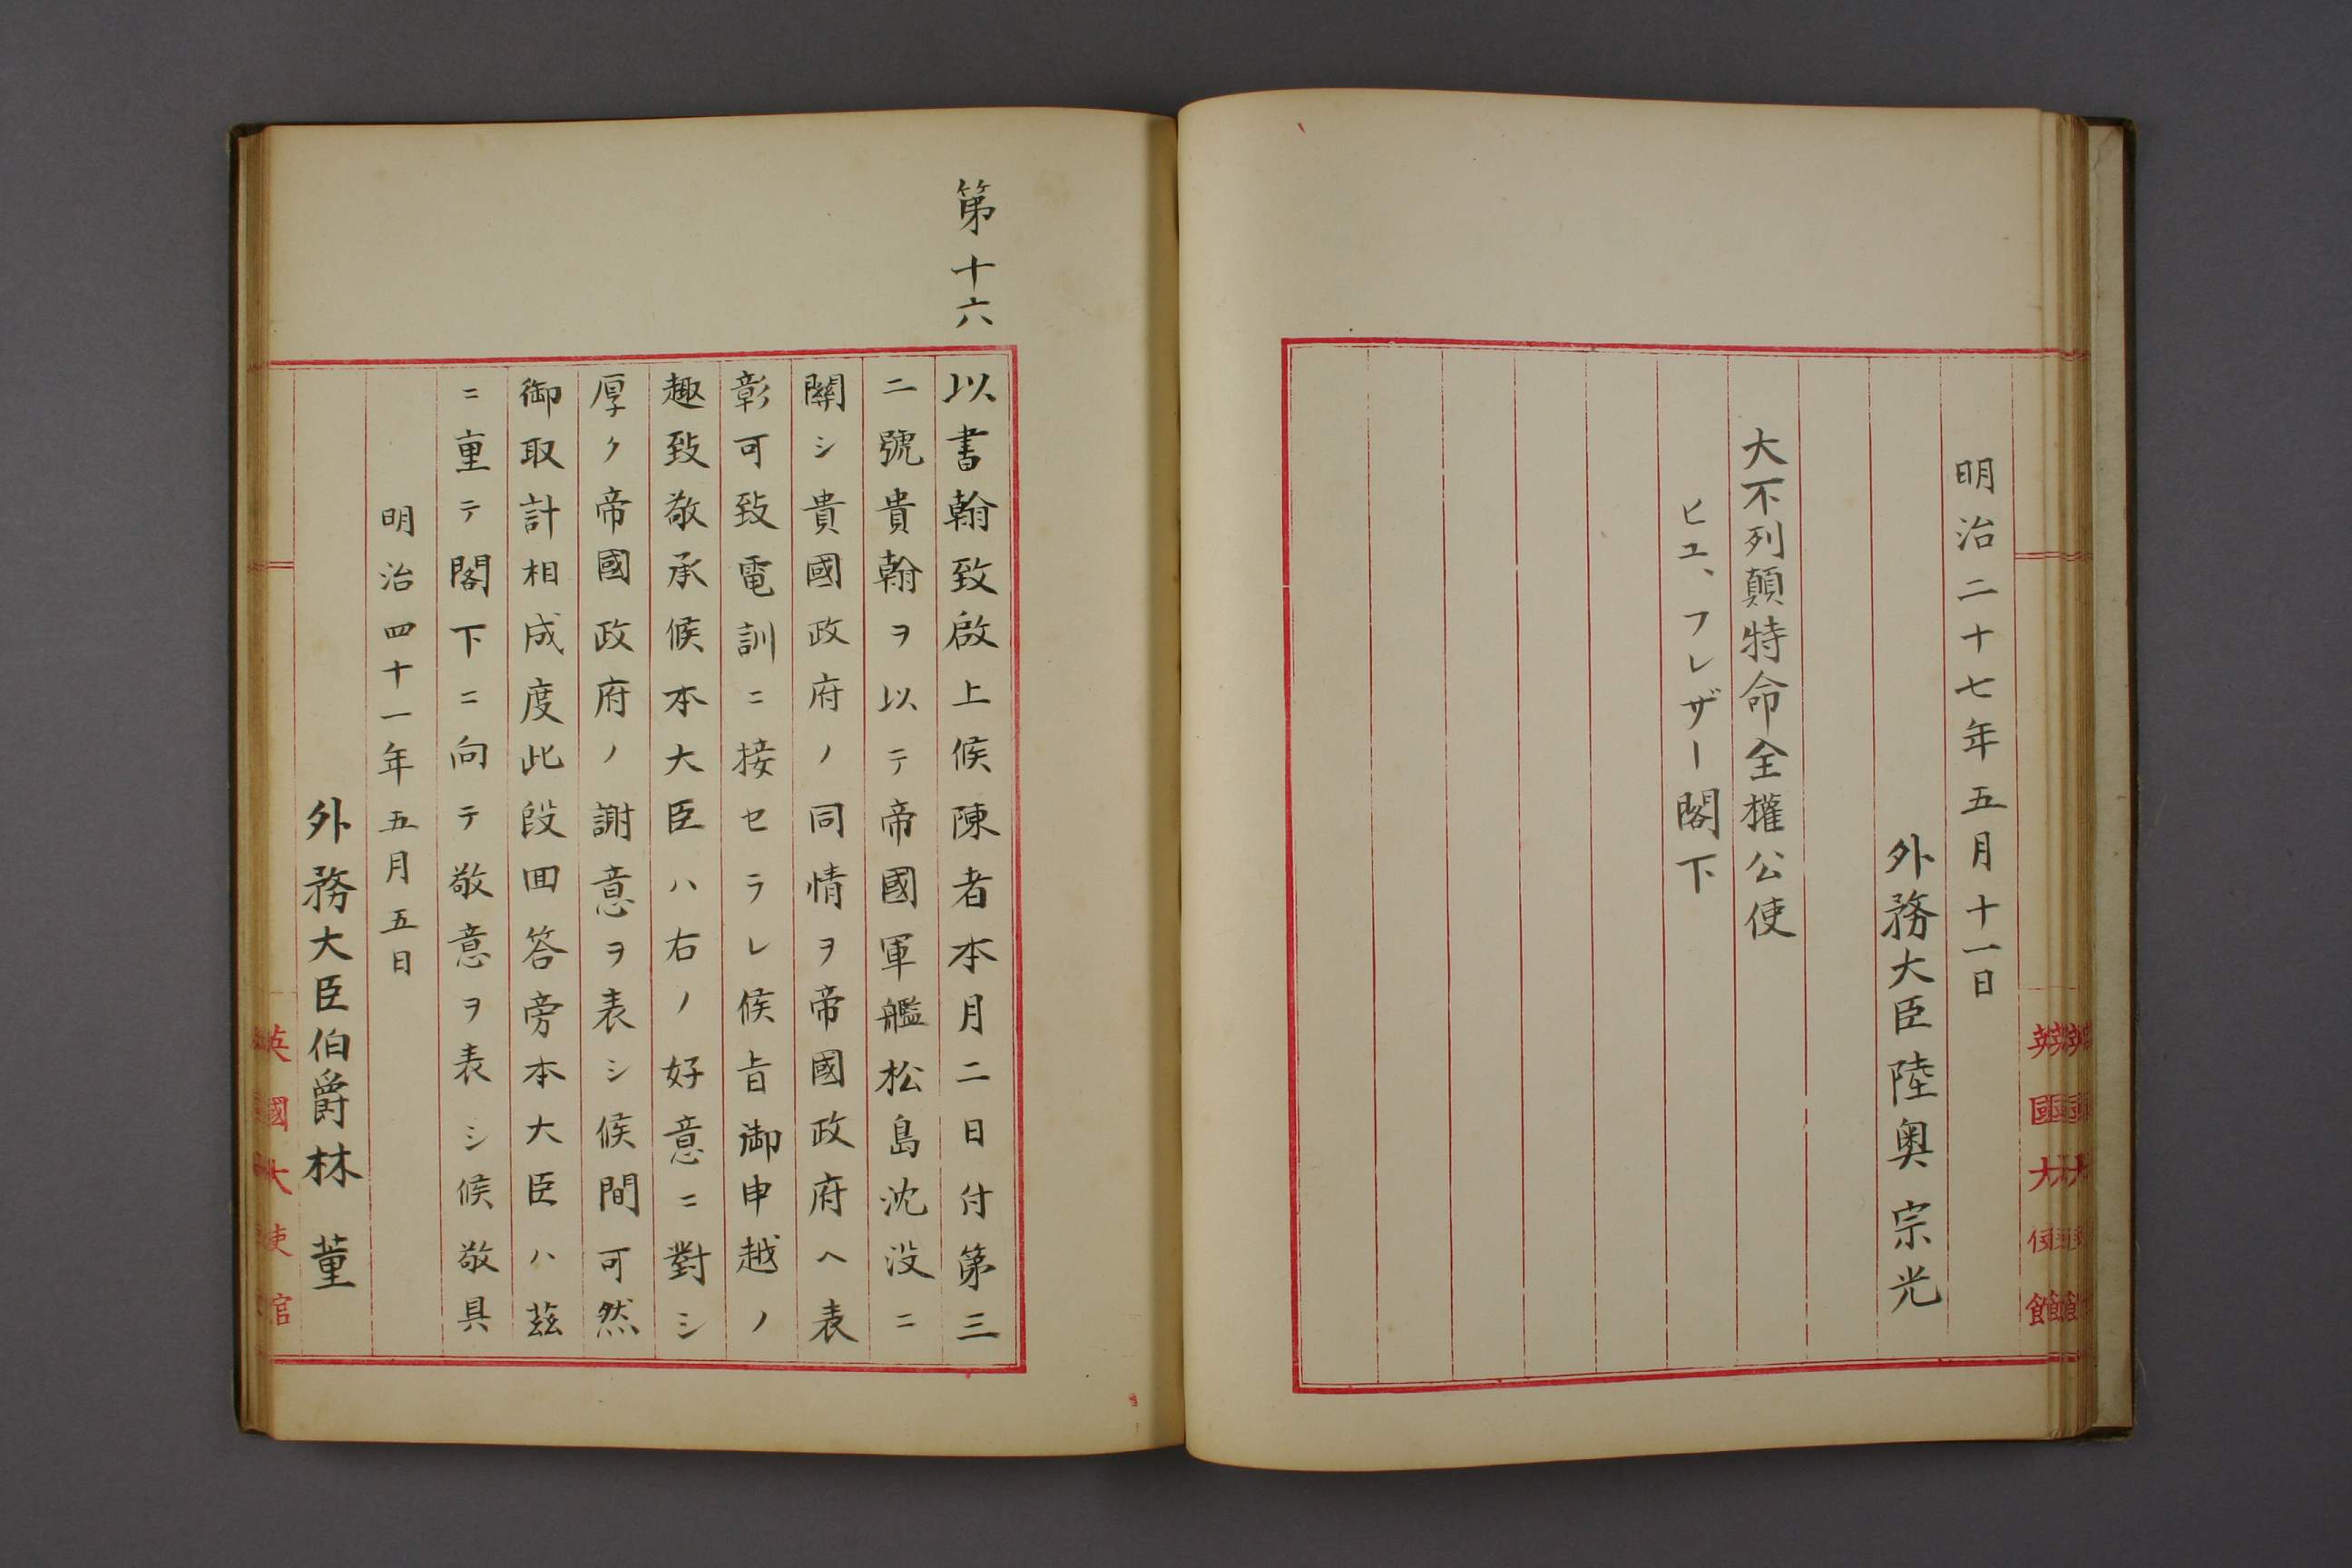 明治二十七年五月十一日
外務大臣陸奥宗光
大不列顛特命全權公使
ヒユ、フレザー閣下
英國大使館
第十六
以書翰致啟上候陳者本月二日付第三
二號貴翰ヲ以テ帝國軍艦松島沈没ニ
關シ貴國政府ノ同情ヲ帝國政府ヘ表
彰可致電訓ニ接セラレ候旨御申越ノ
趣致敬承候本大臣ハ右ノ好意ニ對シ
厚ク帝國政府ノ謝意ヲ表シ候間可然
御取計相成度此段囬答旁本大臣ハ茲
ニ重テ閣下ニ向テ敬意ヲ表シ候敬具
明治四十一年五月五日
外務大臣伯爵林董
英國大使館